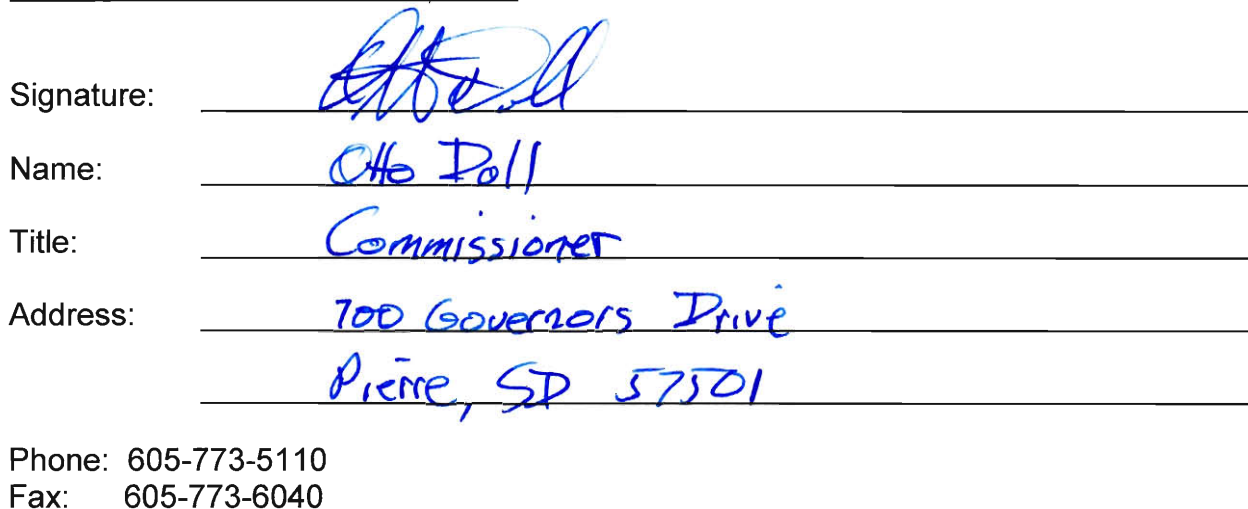 Signature: Otto Doll
Name: Otto Doll
Title: Commissioner
Address: 700 Governors Drive
Pierre, SD 57501
Phone: 605-773-5110
Fax: 605-773-6040